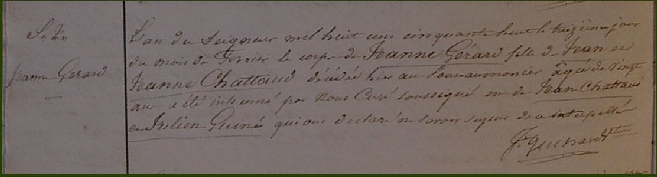 S.re
Jeanne Gerard
L'an du Seigneur mil huit cent cinquante huit le treizieme jour
du mois de Fevrier le corps de Jeanne Gérard fille de Jean et
Jeanne Chattaud décédée hier au âgée de vingt
ans a été inhumé par Nous Curé soussigné en de Jean Chattaud
et Julien Guiné qui ont declaré ne savoir signer de ce interpellé